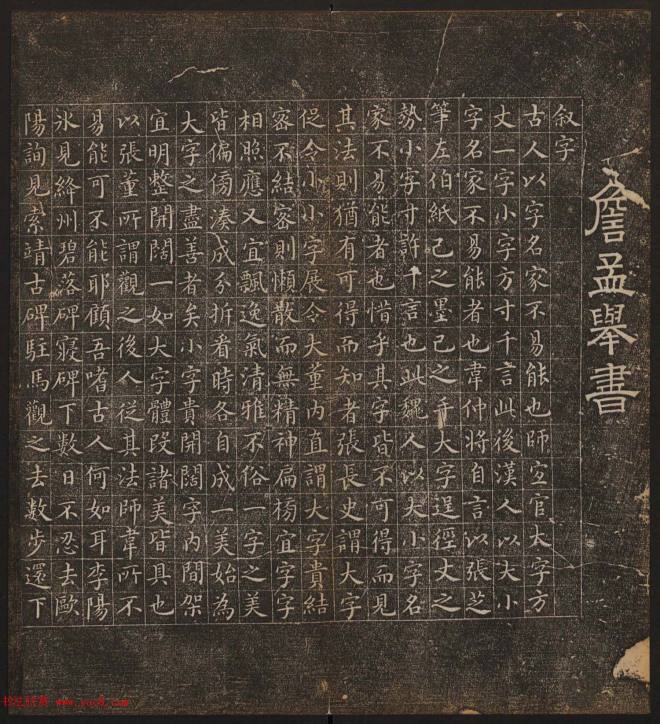 詹孟舉書
叙字
古人以字名家不易能也師宜官大字方
丈一字小字方寸千言此後漢人以大小
字名家不易能者也韋仲將自言以張芝
筆左伯紙己之墨己之手大字逞徑丈之
勢小字寸許千言也此魏人以大小字名
家不易能者也惜乎其字皆不可得而見
其法則猶有可得而知者張長史謂大字
促令小小字展令大董内直謂大字貴結
密不結密則懶散而無精神扁榜宜字字
相照應又宜飄逸氣清雅不俗一字之美
皆偏傍湊成分拆看時各自成一美始為
大字之盡善者矣小字貴開闊字内間架
宜明整開闊一如大字體段諸美皆具也
以張董所謂觀之後人從其法師韋所不
易能可不能耶顧吾嗜古人何如耳李陽
氷見絳州碧落碑寢碑下數日不忍去歐
陽詢見索靖古碑駐馬觀之去數步還下
www.yac8.com